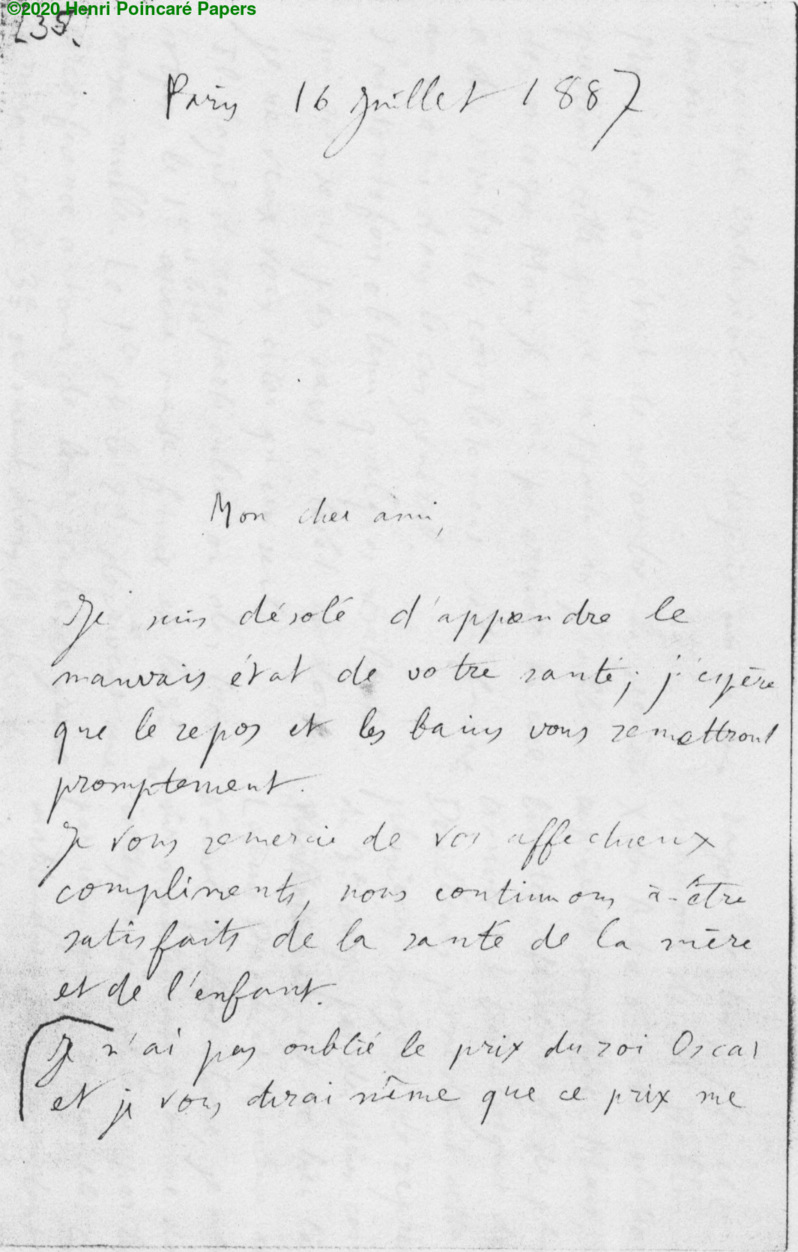 ©2020 Henri Poincaré Papers
235.
Paris 16 Juillet 1887
Mon cher ami,
Je suis désolé d'apprendre le
mauvais état de votre santé; j'espère
que le repos et les bains vous remettront
promptement.
Je vous remercie de vos affectueux
compliments, nous continuons à être
satisfaits de la santé de la mère
et de l'enfant.
Je n'ai pas oublié le prix du roi Oscar
et je vous dirai même que ce prix me